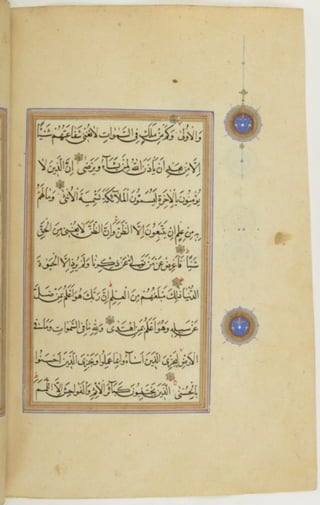 وَالْأُولَىٰ وَكَمْ مِنْ مَلَكٍ فِي السَّمَوَاتِ لَا تُغْنِي شَفَاعَتُهُمْ شَيْئًا
إِلَّا مِنْ بَعْدِ أَنْ يَأْذَنَ اللَّهُ لِمَنْ يَشَاءُ وَيَرْضَىٰ إِنَّ الَّذِينَ لَا
يُؤْمِنُونَ بِالْآخِرَةِ لَيُسَمُّونَ الْمَلَائِكَةَ تَسْمِيَةَ الْأُنْثَىٰ وَمَا لَهُمْ
بِهِ مِنْ عِلْمٍ إِنْ يَتَّبِعُونَ إِلَّا الظَّنَّ وَإِنَّ الظَّنَّ لَا يُغْنِي مِنَ الْحَقِّ
شَيْئًا فَأَعْرِضْ عَنْ مَنْ تَوَلَّىٰ عَنْ ذِكْرِنَا وَلَمْ يُرِدْ إِلَّا الْحَيَوةَ
الدُّنْيَا ذَلِكَ مَبْلَغُهُمْ مِنَ الْعِلْمِ إِنَّ رَبَّكَ هُوَ أَعْلَمُ بِمَنْ ضَلَّ
عَنْ سَبِيلِهِ وَهُوَ أَعْلَمُ بِمَنِ اهْتَدَىٰ وَلِلَّهِ مَا فِي السَّمَوَاتِ وَمَا فِي
الْأَرْضِ لِيَجْزِيَ الَّذِينَ أَسَاءُوا بِمَا عَمِلُوا وَيَجْزِيَ الَّذِينَ أَحْسَنُوا
بِالْحُسْنَى الَّذِينَ يَجْتَنِبُونَ كَبَائِرَ الْإِثْمِ وَالْفَوَاحِشَ إِلَّا اللَّمَمَ